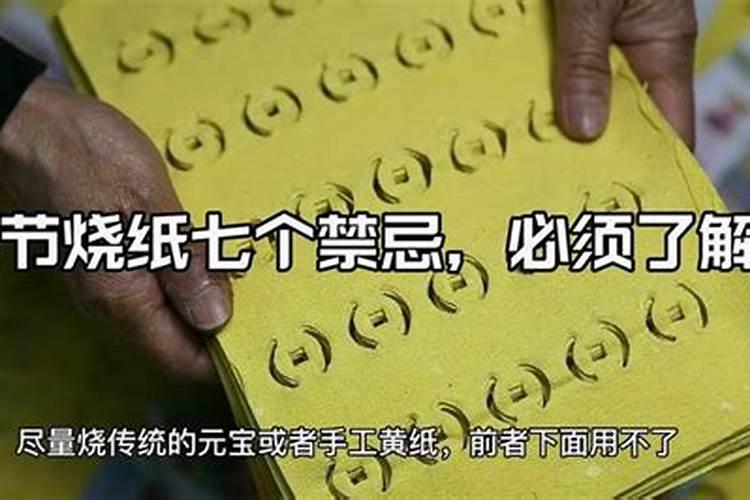 节烧纸七个禁忌，必须了解
尽量烧传统的元宝或者手工黄纸，前者下面用不了